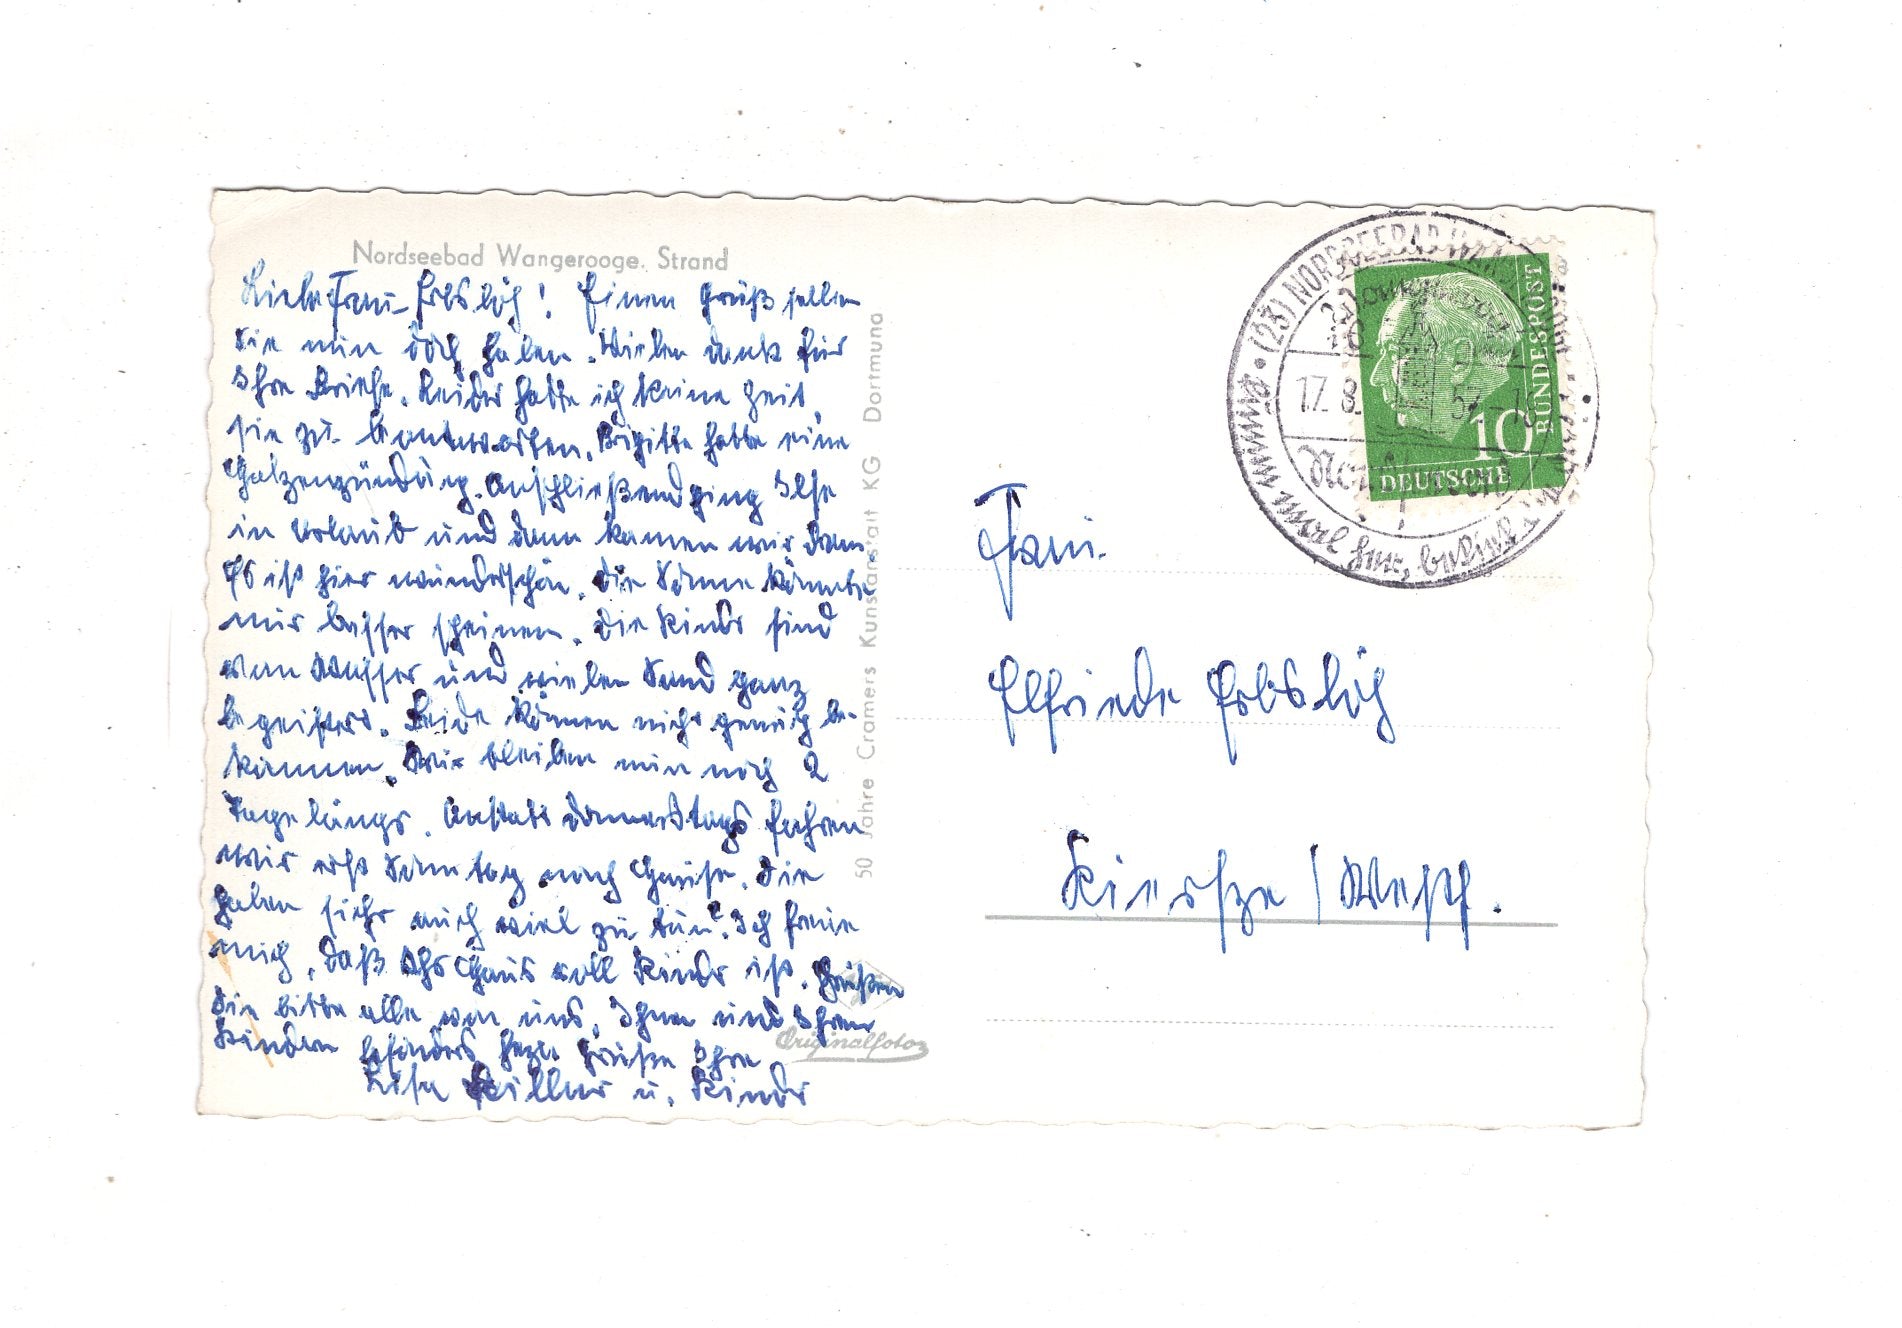 Nordseebad Wangerooge. Strand
Liebe Frau Erbslöh! Einen Gruß sollen
Sie nun doch haben. Vielen Dank für
Ihre Briefe. Leider hatte ich keine Zeit
sie zu beantworten. Brigitte hatte eine
Halzenzündung. Anschließend ging Ilse
in Urlaub und dann kamen wir dran.
Es ist hier wunderschön. Die Sonne könnte
nur besser scheinen. Die Kinder sind
von Wasser und vielen Sand ganz
begeistert. Beide können nicht genug be-
kommen. Wir bleiben nun noch 2
Tage länger. Anstatt Donnerstags fahren
wir erst Sonntag nach Hause. Sie
haben sicher auch viel zu tun? Ich freue
mich, daß Ihr Haus voll Kinder ist. Grüßen
Sie bitte alle von uns, Ihnen und Ihren
Kindern besonders herzl. Grüße Ihre
Lisa u. Kinder
50 Jahre Cramers Kunstanstalt KG Dortmund
Originalfoto
(23) NORDSEEBAD
17. 8. 57 - 18
BUNDESPOST
10
DEUTSCHE
Frau
Elfriede Erbslöh
Kierspe / Westf.